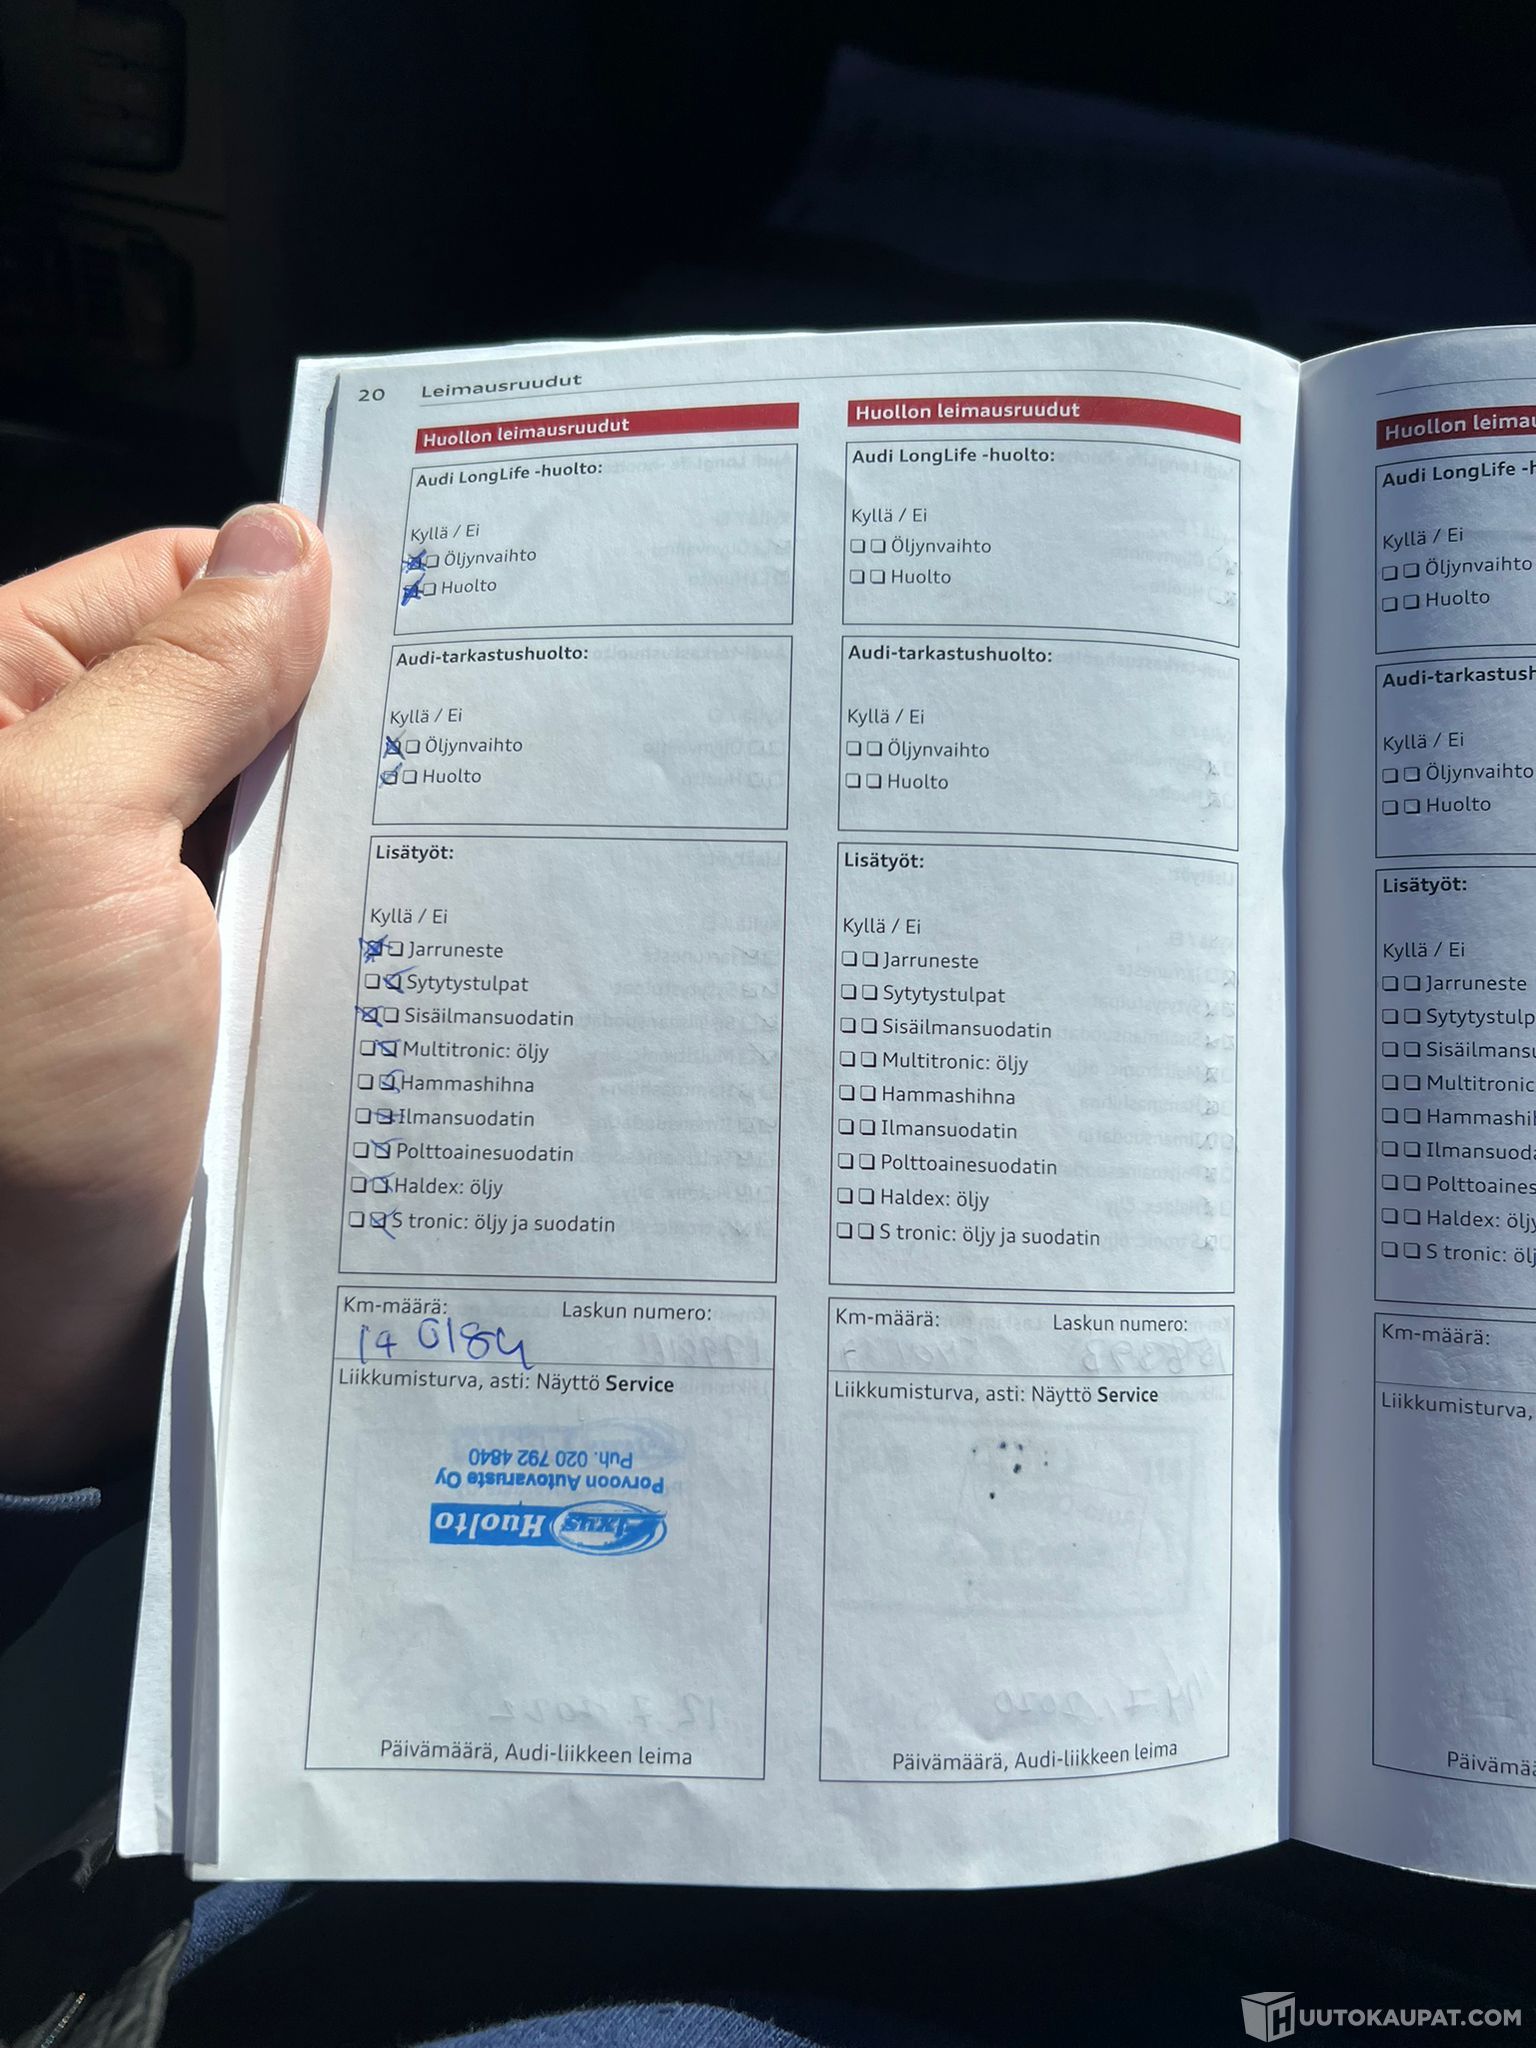 20 Leimausruudut
Huollon leimausruudut
Audi LongLife -huolto:
Kyllä / Ei
Öljynvaihto
Huolto
Audi-tarkastushuolto:
Kyllä / Ei
Öljynvaihto
Huolto
Lisätyöt:
Kyllä / Ei
Jarruneste
Sytytystulpat
Sisäilmansuodatin
Multitronic: öljy
Hammashihna
Ilmansuodatin
Polttoainesuodatin
Haldex: öljy
S tronic: öljy ja suodatin
Km-määrä: Laskun numero:
Liikkumisturva, asti: Näyttö Service
Huolto
Porvoon Autovaruste Oy
Puh. 020 792 4840
Päivämäärä, Audi-liikkeen leima
Huollon leimausruudut
Audi LongLife -huolto:
Kyllä / Ei
Öljynvaihto
Huolto
Audi-tarkastushuolto:
Kyllä / Ei
Öljynvaihto
Huolto
Lisätyöt:
Kyllä / Ei
Jarruneste
Sytytystulpat
Sisäilmansuodatin
Multitronic: öljy
Hammashihna
Ilmansuodatin
Polttoainesuodatin
Haldex: öljy
S tronic: öljy ja suodatin
Km-määrä: Laskun numero:
Liikkumisturva, asti: Näyttö Service
Päivämäärä, Audi-liikkeen leima
Huollon
Audi LongLife
Kyllä / Ei
Öljynvaihto
Huolto
Kyllä / Ei
Öljynvaihto
Huolto
Lisätyöt:
Kyllä / Ei
Jarruneste
Multitronic
Haldex:
S tronic:
Km-määrä:
Liikkumisturva,
HUUTOKAUPAT.COM